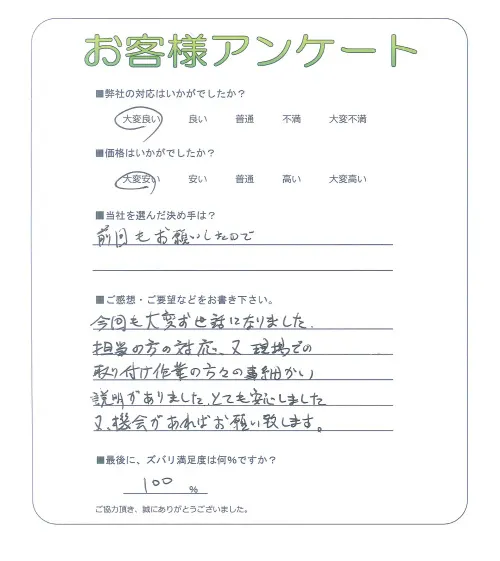 お客様アンケート
■弊社の対応はいかがでしたか？
大変良い 良い 普通 不満 大変不満
■価格はいかがでしたか？
大変安い 安い 普通 高い 大変高い
■当社を選んだ決め手は？
前回もお願いしたので
■ご感想・ご要望などをお書き下さい。
今回も大変お世話になりました.
担当の方の対応、又現場での
取り付け作業の方々の事細かい
説明がありました、とても安心しました
又、機会があればお願い致します。
■最後に、ズバリ満足度は何%ですか？
100 %
ご協力頂き、誠にありがとうございました。